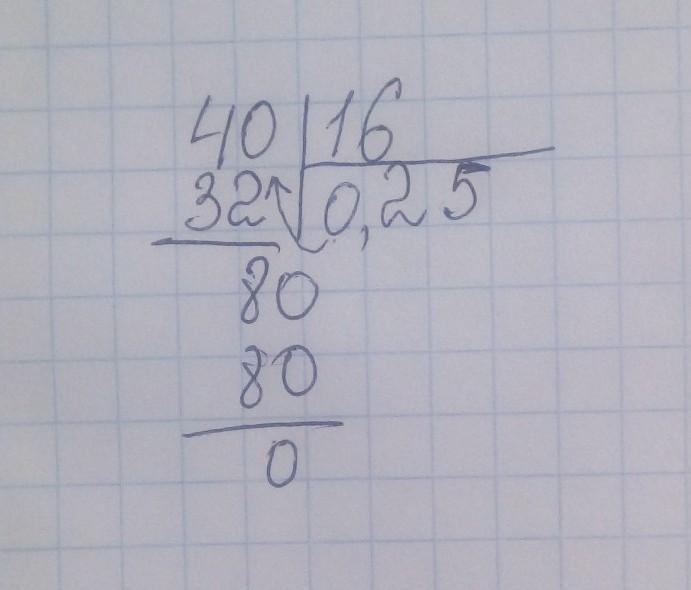 40 16
32 0,25
80
80
0